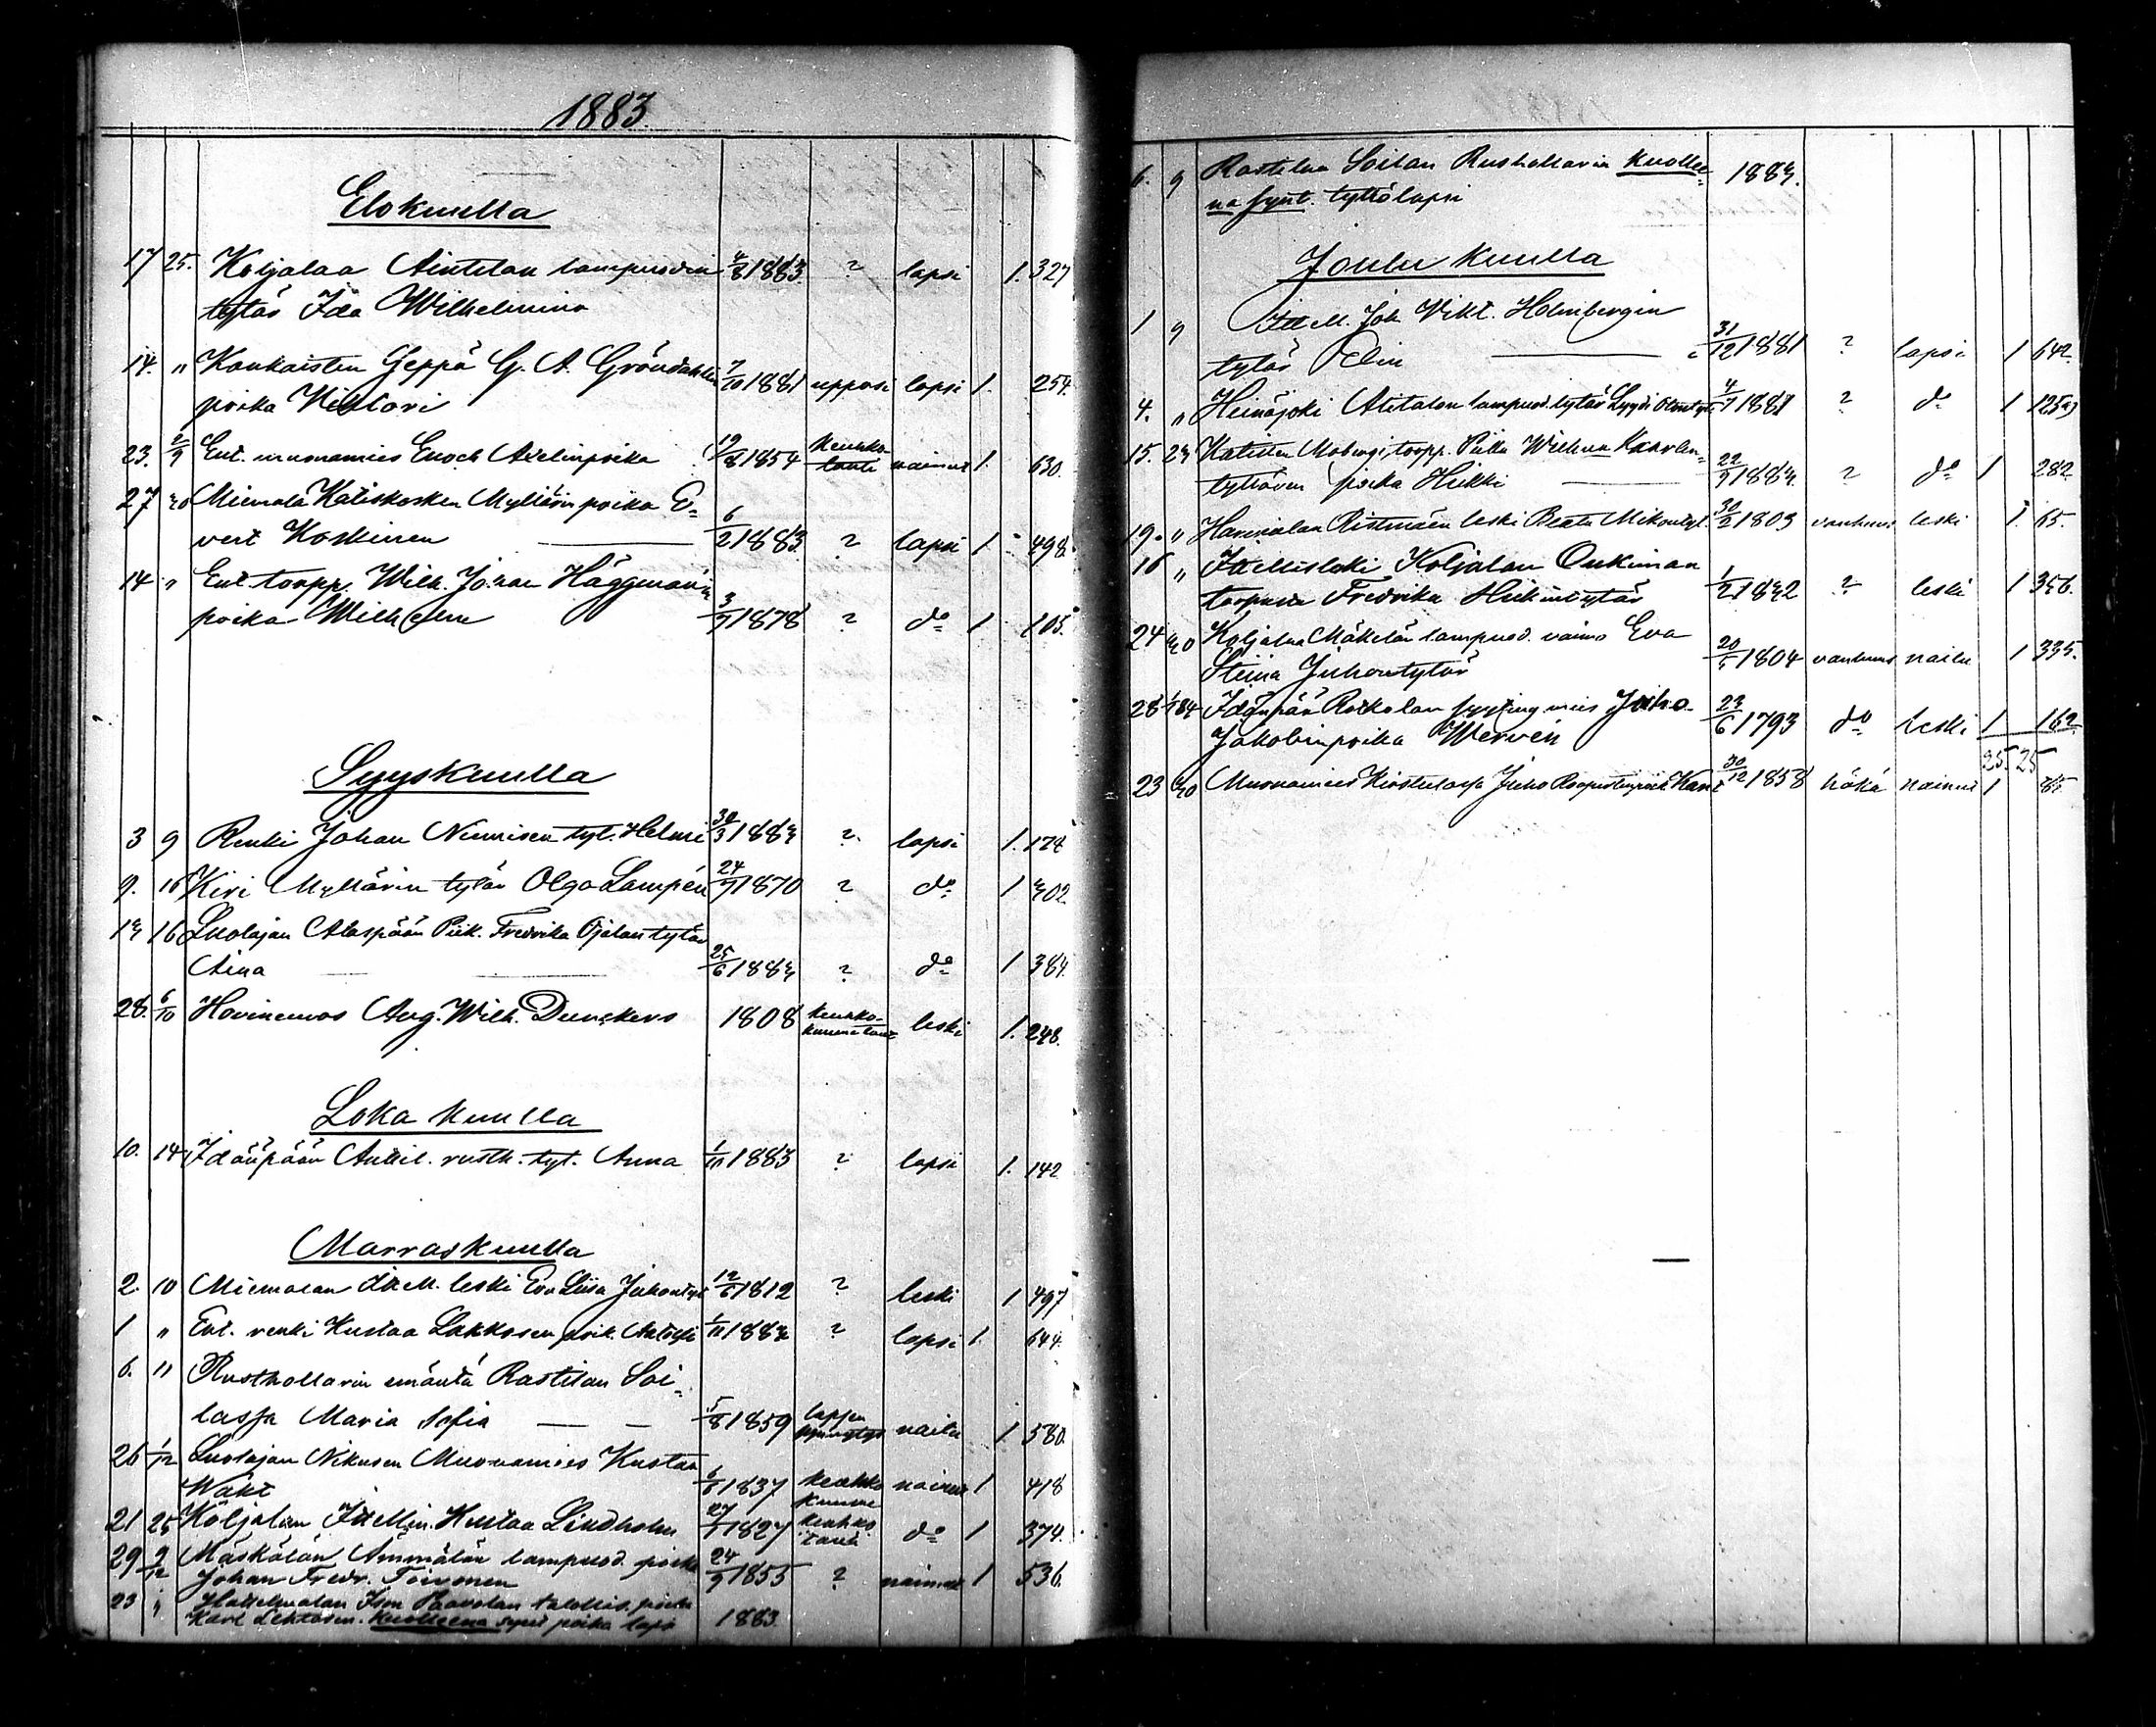 1883
Elokuulla
17 25. Koljalaa Aintilan lampuodin 4/8 1883. ? lapsi 1. 327
tytär Ida Wilhelmina
14. " Kankaisten Seppä G. A. Gröndahlin 7/10 1881 lapsi 1. 254.
poika Viktori
23. 2/9 Ent. muonamies Enoch Axelinpoika 19/8 1854 keuhko-tauti nainut 1. 630.
27 30 Miemala Kätiskosken Myllärin poika E-
vert Koskinen 6/2 1883. ? lapsi 1 498.
14 " Ent. torpp. Wilh. Johan Häggmanin
poika Wilhelm 3/7 1878 ? do 1 105.
Syyskuulla
3 9 Renki Johan Niemisen tyt. Helmi 30/3 1883 ? lapsi 1. 178
9. 16 Kiri Myllärin tytär Olga Lampén 24/7 1870 ? do 1 302
13 16 Luolajan Alaspään Piik. Fredrika Ojalan tytär
Aina 25/6 1883 ? do 1 384.
28. 6/10 Hovineuvos Aug. Wilh. Dunckers 1808 keuhko-kuumetauti leski 1. 248.
Loka kuulla
10. 14 Idänpään Anttil. rusth. tyt. Anna 1/10 1883 ? lapsi 1. 142
Marraskuulla
2. 10 Miemalan ItM. leski Eva Liisa Juhontyt 12/6 1812 ? leski 1 497
1 " Ent. renki Kustaa Lakkosen poik. 1/11 1883 ? lapsi 1. 644.
6. 11 Rusthollarin emäntä Rastilan Soi-
lassa Maria Sofia 5/8 1859 lapsen synnytys naitu 1. 580.
26 1/12 Luolajan Nikusen Muonamies Kustaa
6/8 1837 keuhko kuume nainut 1 418
21 25 Köljalan ItMin. Kustaa Lindholm 27/7 1827 keuhko tauti do 1 374.
29 9/12 Mäskälän Ämmälän lampuod. poika
Johan Fredr. Toivonen 24/9 1855 ? nainut 1 536.
23 " Hattelmalan Ison Paavolan talollis. poika
Karl Lehtosen. Kuolleena synt poika lapsi 1883.
6. 9 Rastilan Soilan Rushollarin kuollee-
na synt. tyttölapsi 1883.
Joulu kuulla
1 9 ItM. Joh Vikt. Holmbergin
tytär Elin 31/12 1881 ? lapsi 1 642.
4. " Heinäjoki Alitalon lampuod. tytär Lyydi 4/7 1881 ? do 1 125
15. 23 Katisten Mobergi, torpp. Piika Wilhma Kaarlen-
tyttären poika Heikki 22/9 1883. ? do 1 282.
19. " Harvialan Ristimäen leski Beata Mikontyt. 30/2 1803 vanhuus leski 1. 65.
16 " Itellisleski Koljalan Onkiman
torpasta Fredrika Heikintytär 1/2 1832 ? leski 1 356.
24 30 Koljalaa Mäkelän lampuod. vaimo Eva
Stiina Juhontytär 20/5 1804 vanhuus naitu 1 335.
28 1/1 84 Idänpään Rotkolan syytingmies Juho
Jakobinpoika Wervén 23/6 1793 do leski 1 162
25. 25
23 30 Muonamies Kirstulassa Juho 30/12 1858 häkä nainut 1 85